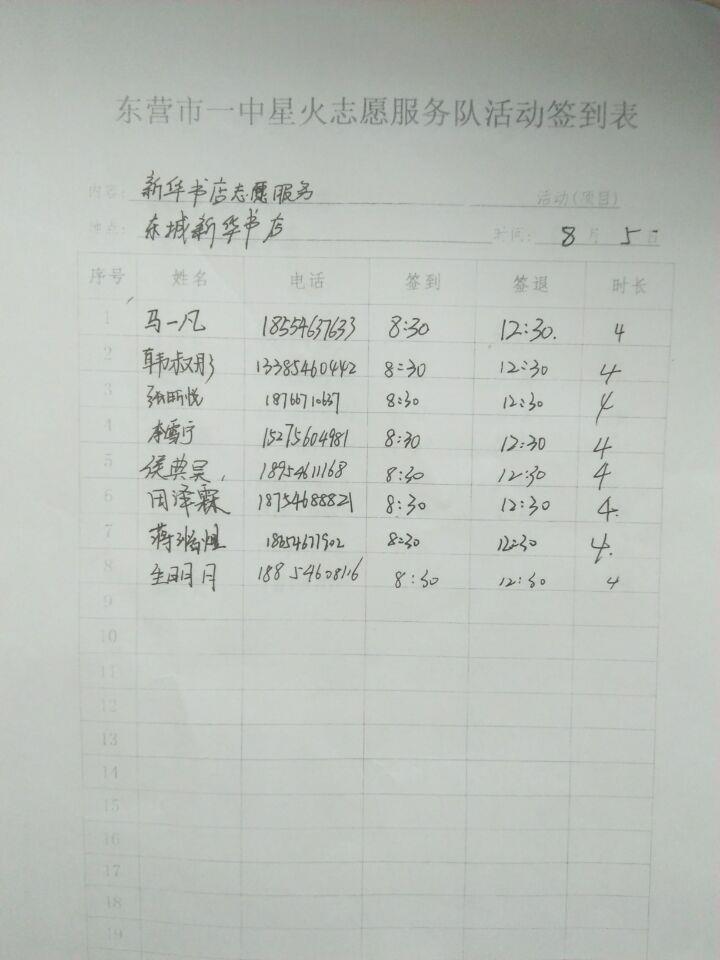 东营市一中星火志愿服务队活动签到表
内容: 新华书店志愿服务 活动(项目)
地点: 东城新华书店 时间: 8月5日
序号 姓名 电话 签到 签退 时长
1 马一凡 18554637633 8:30 12:30. 4
2 韩叔彤 13385460442 8:30 12:30 4
3 张昕悦 18766710637 8:30 12:30 4
4 李雪宁 15275604981 8:30 12:30 4
5 侯典昊 18954611168 8:30 12:30 4
6 田泽霖 18754688821 8:30 12:30 4.
7 蒋 18654671902 8:30 12:30 4.
8 明月 18854608116 8:30 12:30 4
9
10
11
12
13
14
15
16
17
18
19